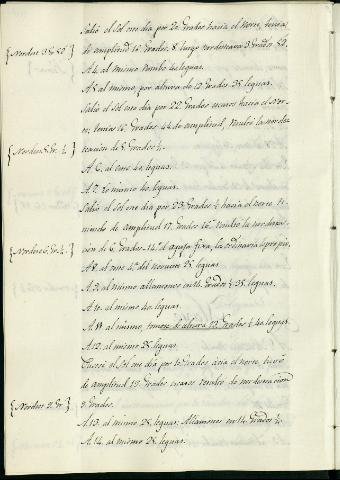 Salió el Sol ese dia por 20 Grados hacia el Norte, tenia
de amplitud 12 Grados, 8 luego nordesteava 3 Grados 52.
{Nordest 3 G. 50'}
A 4 al mismo rumbo 40 leguas.
A 5 al mismo, por altura de 12 Grados 35 leguas.
Salió el Sol ese dia por 22 Grados escasos hacia el Nor-
te, tenia 16 Grados 44 de amplitud,
cación de 5 Grados ¼.
{Nordest 5 Gr. ¼}
A 6, al oeste 40 leguas.
A 7, lo mismo 40 leguas.
Salió el Sol ese dia por 23 Grados ½ hacia el norte te-
niendo de amplitud 17 Grados 16
ción de 6 Grados 14', el aguja fixa, la ordinaria le propio.
{Nordest 6 Gr. ¼}
A 8 al oeste 4ª del noroeste 25 leguas.
A 9, al mismo allamonos en 14 Grados ½ 35 leguas.
A 10, al mismo 40 leguas.
A 11 al mismo, tomose de altura 12 Grados ½ 40 leguas.
A 12, al mismo 35 leguas.
el Sol ese dia por 10 Grados acia el norte, tuvo
de amplitud 19 Grados escasos rumbo de nordesteacion
9 Grados.
{Nordest 9 Gr.}
A 13, al mismo 28 leguas; Allamonos en 14 Grados ½
A 14, al mismo 28 leguas.